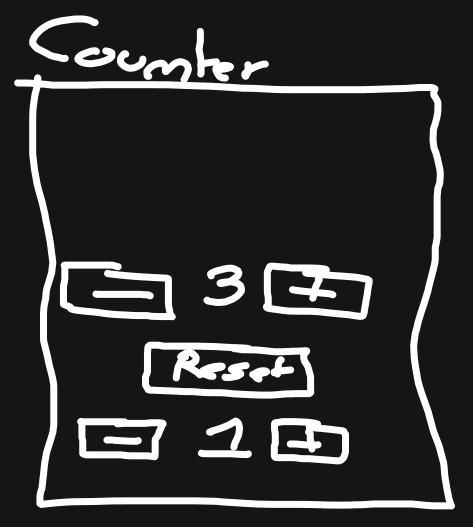 Counter
- 3 +
Reset
- 1 +